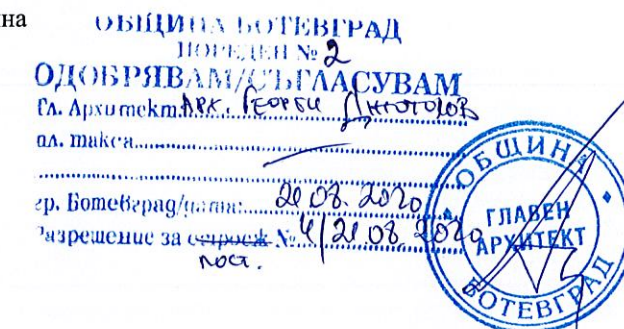 на
ОБЩИНА БОТЕВГРАД
ПОРЕДЕН № 2
ОДОБРЯВАМ/СЪГЛАСУВАМ
Гл. Архитект: АРХ. ГЕОРГИ
пл. такса
гр. Ботевград/дата: 21.08.2020
Разрешение за строеж № 4/21.08.2020
пост.
ОБЩИНА
ГЛАВЕН
АРХИТЕКТ
БОТЕВГРАД